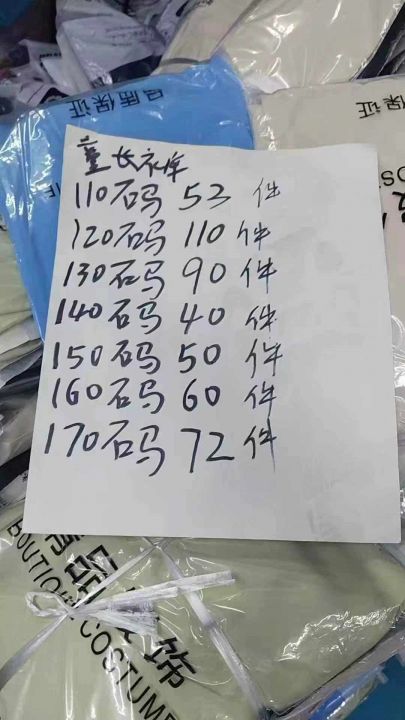 品质保证
品质保证
童长衣库
110码 53 件
120码 110 件
130码 90 件
140码 40 件
150码 50 件
160码 60 件
170码 72 件
BOUTIQUE COSTUME
饰